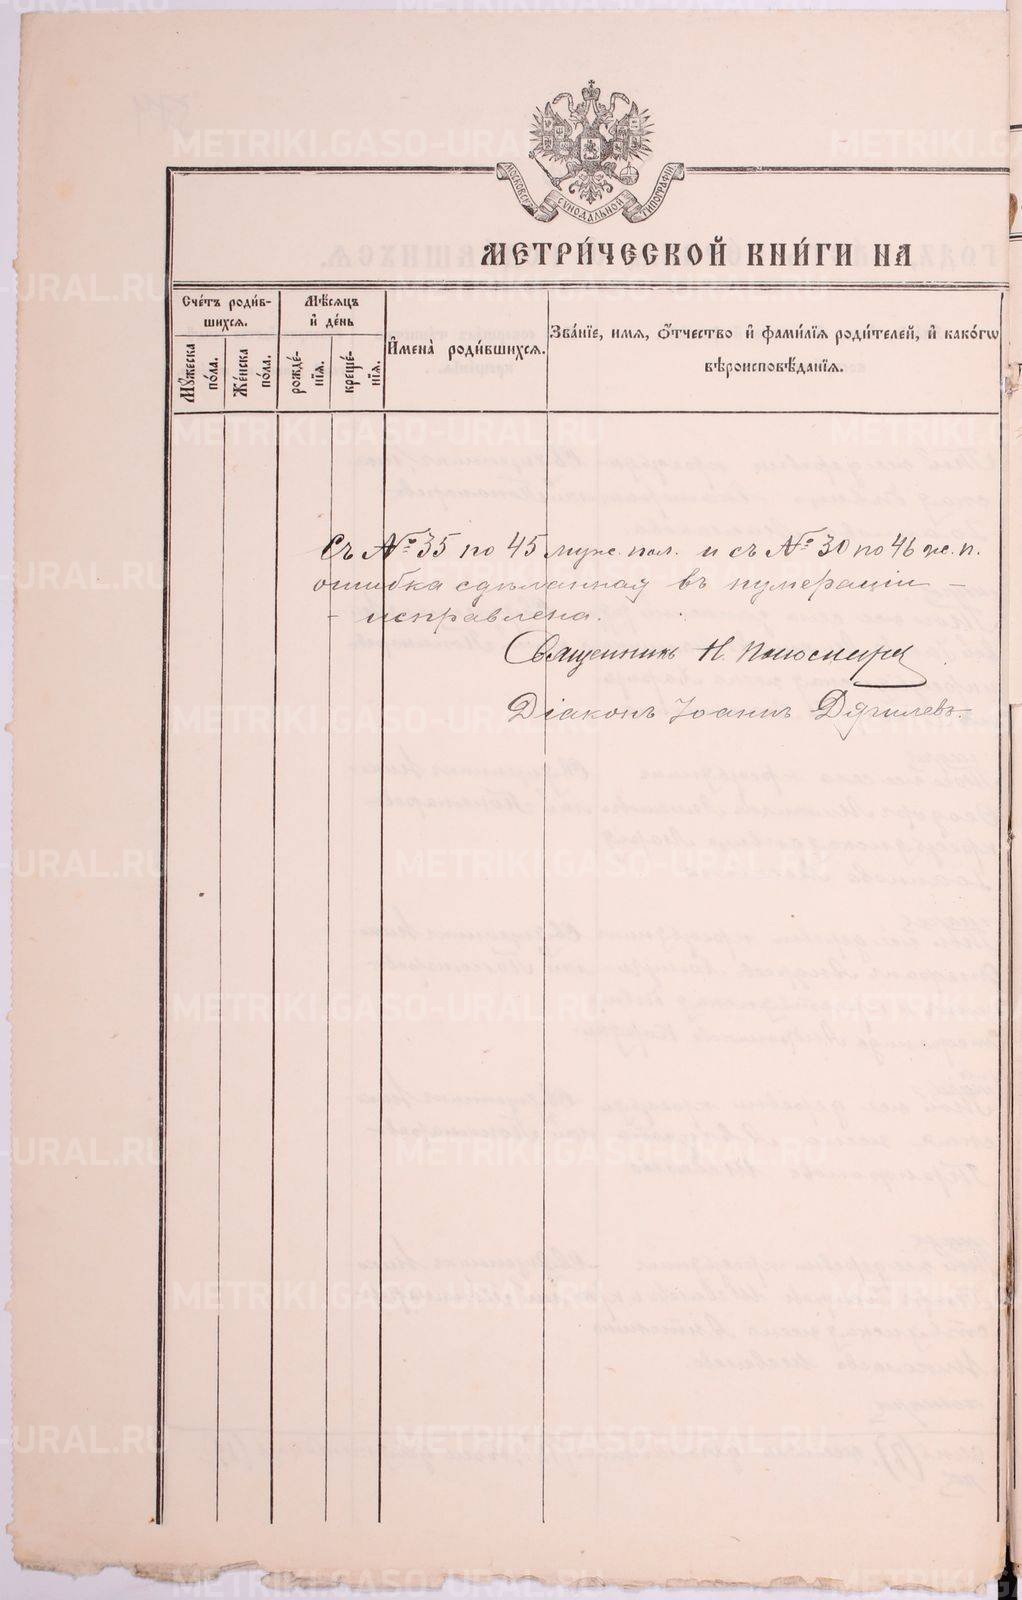 МОСКОВСКОЙ СѴНОДАЛЬНОЙ ТИПОГРАФІИ
МЕТРИ́ЧЕСКОЙ КНИ́ГИ НА
Сче́тъ роди́в-
шихся.
Мѣ́сяцъ
и҆ де́нь
И҆мена̀ роди́вшихся.
Зва́нїе, имя, ѻ҆́тчество и҆ фами́лїѧ роди́телей, и҆ како́гѡ
вѣроисповѣ́данїѧ.
Мꙋ́жеска
по́ла.
Же́нска
по́ла.
рожде́-
нїѧ.
креще́-
нїѧ.
Съ № 35 по 45 муж. пол. и съ № 30 по 46 ж. п.
ошибка сдѣланная въ нумераціи –
– исправлена.
Священникъ Н.
Діаконъ Іоаннъ Дягилевъ.
METRIKI.GASO-URAL.RU